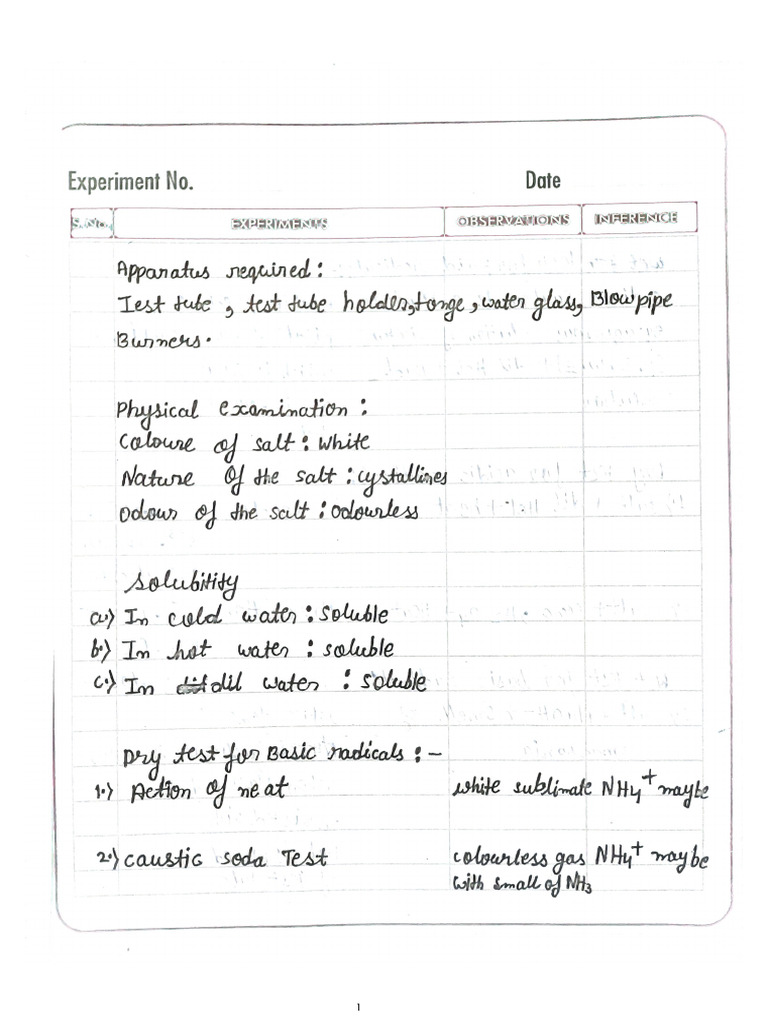 Experiment No. Date
S. No. EXPERIMENTS OBSERVATIONS INFERENCE
Apparatus required :
Test tube , test tube holder, tonge , water glass, Blow pipe
Burners.
Physical examination :
Coloure of salt : white
Nature of the salt : cystallines
Odour of the salt : odourless
Solubitity
a.) In cold water : soluble
b.) In hot water : soluble
c.) In dil water : soluble
Dry test for Basic radicals : -
1.) Action of neat white sublimate NH4+ maybe
2.) caustic soda Test colourless gas NH4+ maybe
with small of NH3
1